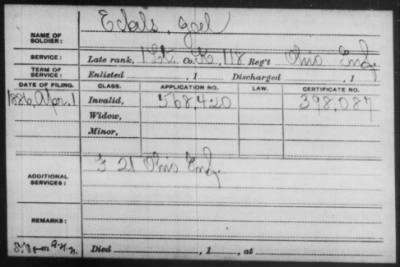 NAME OF SOLDIER: Eckels, Joel
SERVICE: Late rank, 1 Lt. Co. K, 118 Reg't Ohio Inf.
TERM OF SERVICE: Enlisted , 1 Discharged , 1
DATE OF FILING. CLASS. APPLICATION NO. LAW. CERTIFICATE NO.
1886, Apr. 1 Invalid, 568,420 398,087
Widow,
Minor,
ADDITIONAL SERVICES: 21 Ohio Inf.
REMARKS:
Died , 1 , at